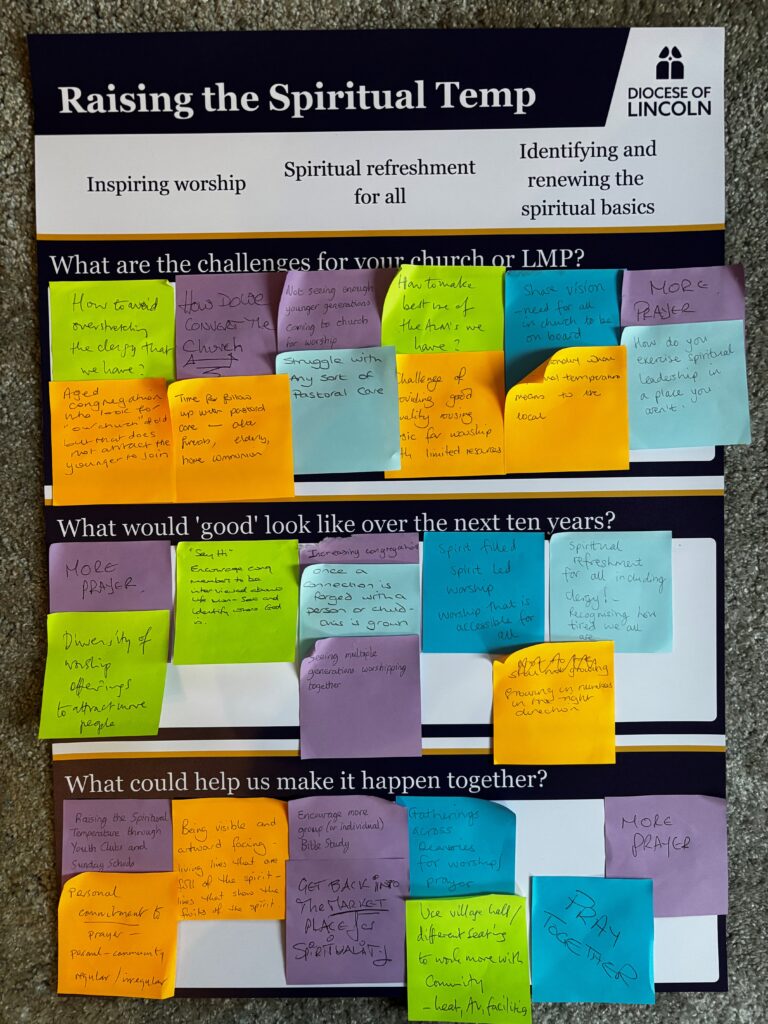 Raising the Spiritual Temp
DIOCESE OF
LINCOLN
Inspiring worship
Spiritual refreshment
for all
Identifying and
renewing the
spiritual basics
What are the challenges for your church or LMP?
How to avoid
overstretching
the clergy that
we have?
HOW DO WE
CONVERT THE
CHURCH
Not seeing enough
younger generations
coming to church
for worship
How to make
best use of
the ALMs we
have?
Share vision
- need for all
in church to be
on board
MORE
PRAYER
Aged
congregation
who look for
"our church" of old
but that does
not attract the
younger to join
Time for follow
up with pastoral
care — after
funerals, elderly,
home communion
Struggle with
Any sort of
Pastoral Care
Challenge of
providing good
quality rousing
music for worship
with limited resources
what
temperature
means to the
local
How do you
exercise spiritual
leadership in
a place you
aren't?
What would 'good' look like over the next ten years?
MORE
PRAYER.
"Say Hi"
Encourage cong
members to be
interviewed about
life and
identify where God
is.
Increasing congregation
once a
connection is
forged with a
person or child -
this is grown
Spirit filled
Spirit led
worship
worship that is
accessible for
all
Spiritual
refreshment
for all including
clergy! -
Recognising how
tired we all
are
Diversity of
worship
offerings
to attract more
people
Seeing multiple
generations worshipping
together
Growing in numbers
in the right
direction
What could help us make it happen together?
Raising the Spiritual
Temperature through
Youth Clubs and
Sunday Schools
Being visible and
outward facing -
living lives that are
full of the spirit -
lives that show the
fruits of the spirit
Encourage more
group (or individual)
Bible Study
Gatherings
across
Deaneries
for worship/
prayer
MORE
PRAYER
Personal
commitment to
prayer -
personal - community
regular/irregular
GET BACK INTO
THE MARKET
PLACE for
SPIRITUALITY
Use village hall/
different seating
to work more with
Community
- heat, AV, facilities
PRAY
TOGETHER